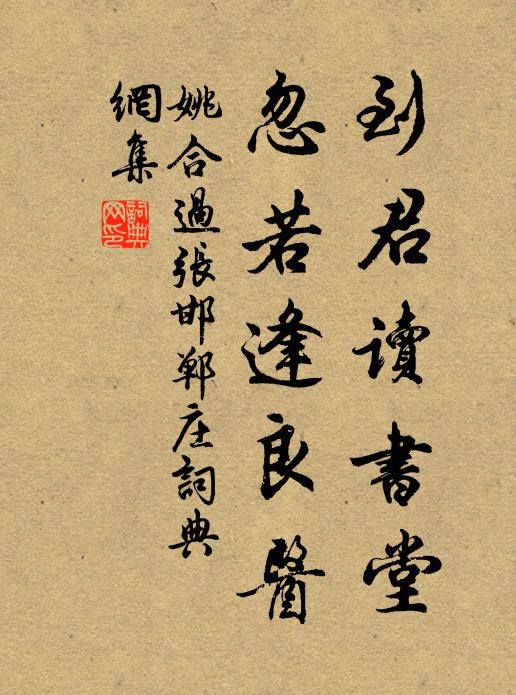 到君读書堂
忽若逢良醫
姚合過張邯鄲庄詞典
網集
詞典
网印